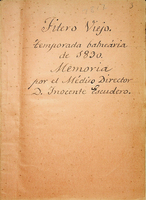 Fitero Viejo.
Temporada balnearia
de 1890.
Memoria
por el Médico Director
D. Inocente Escudero.